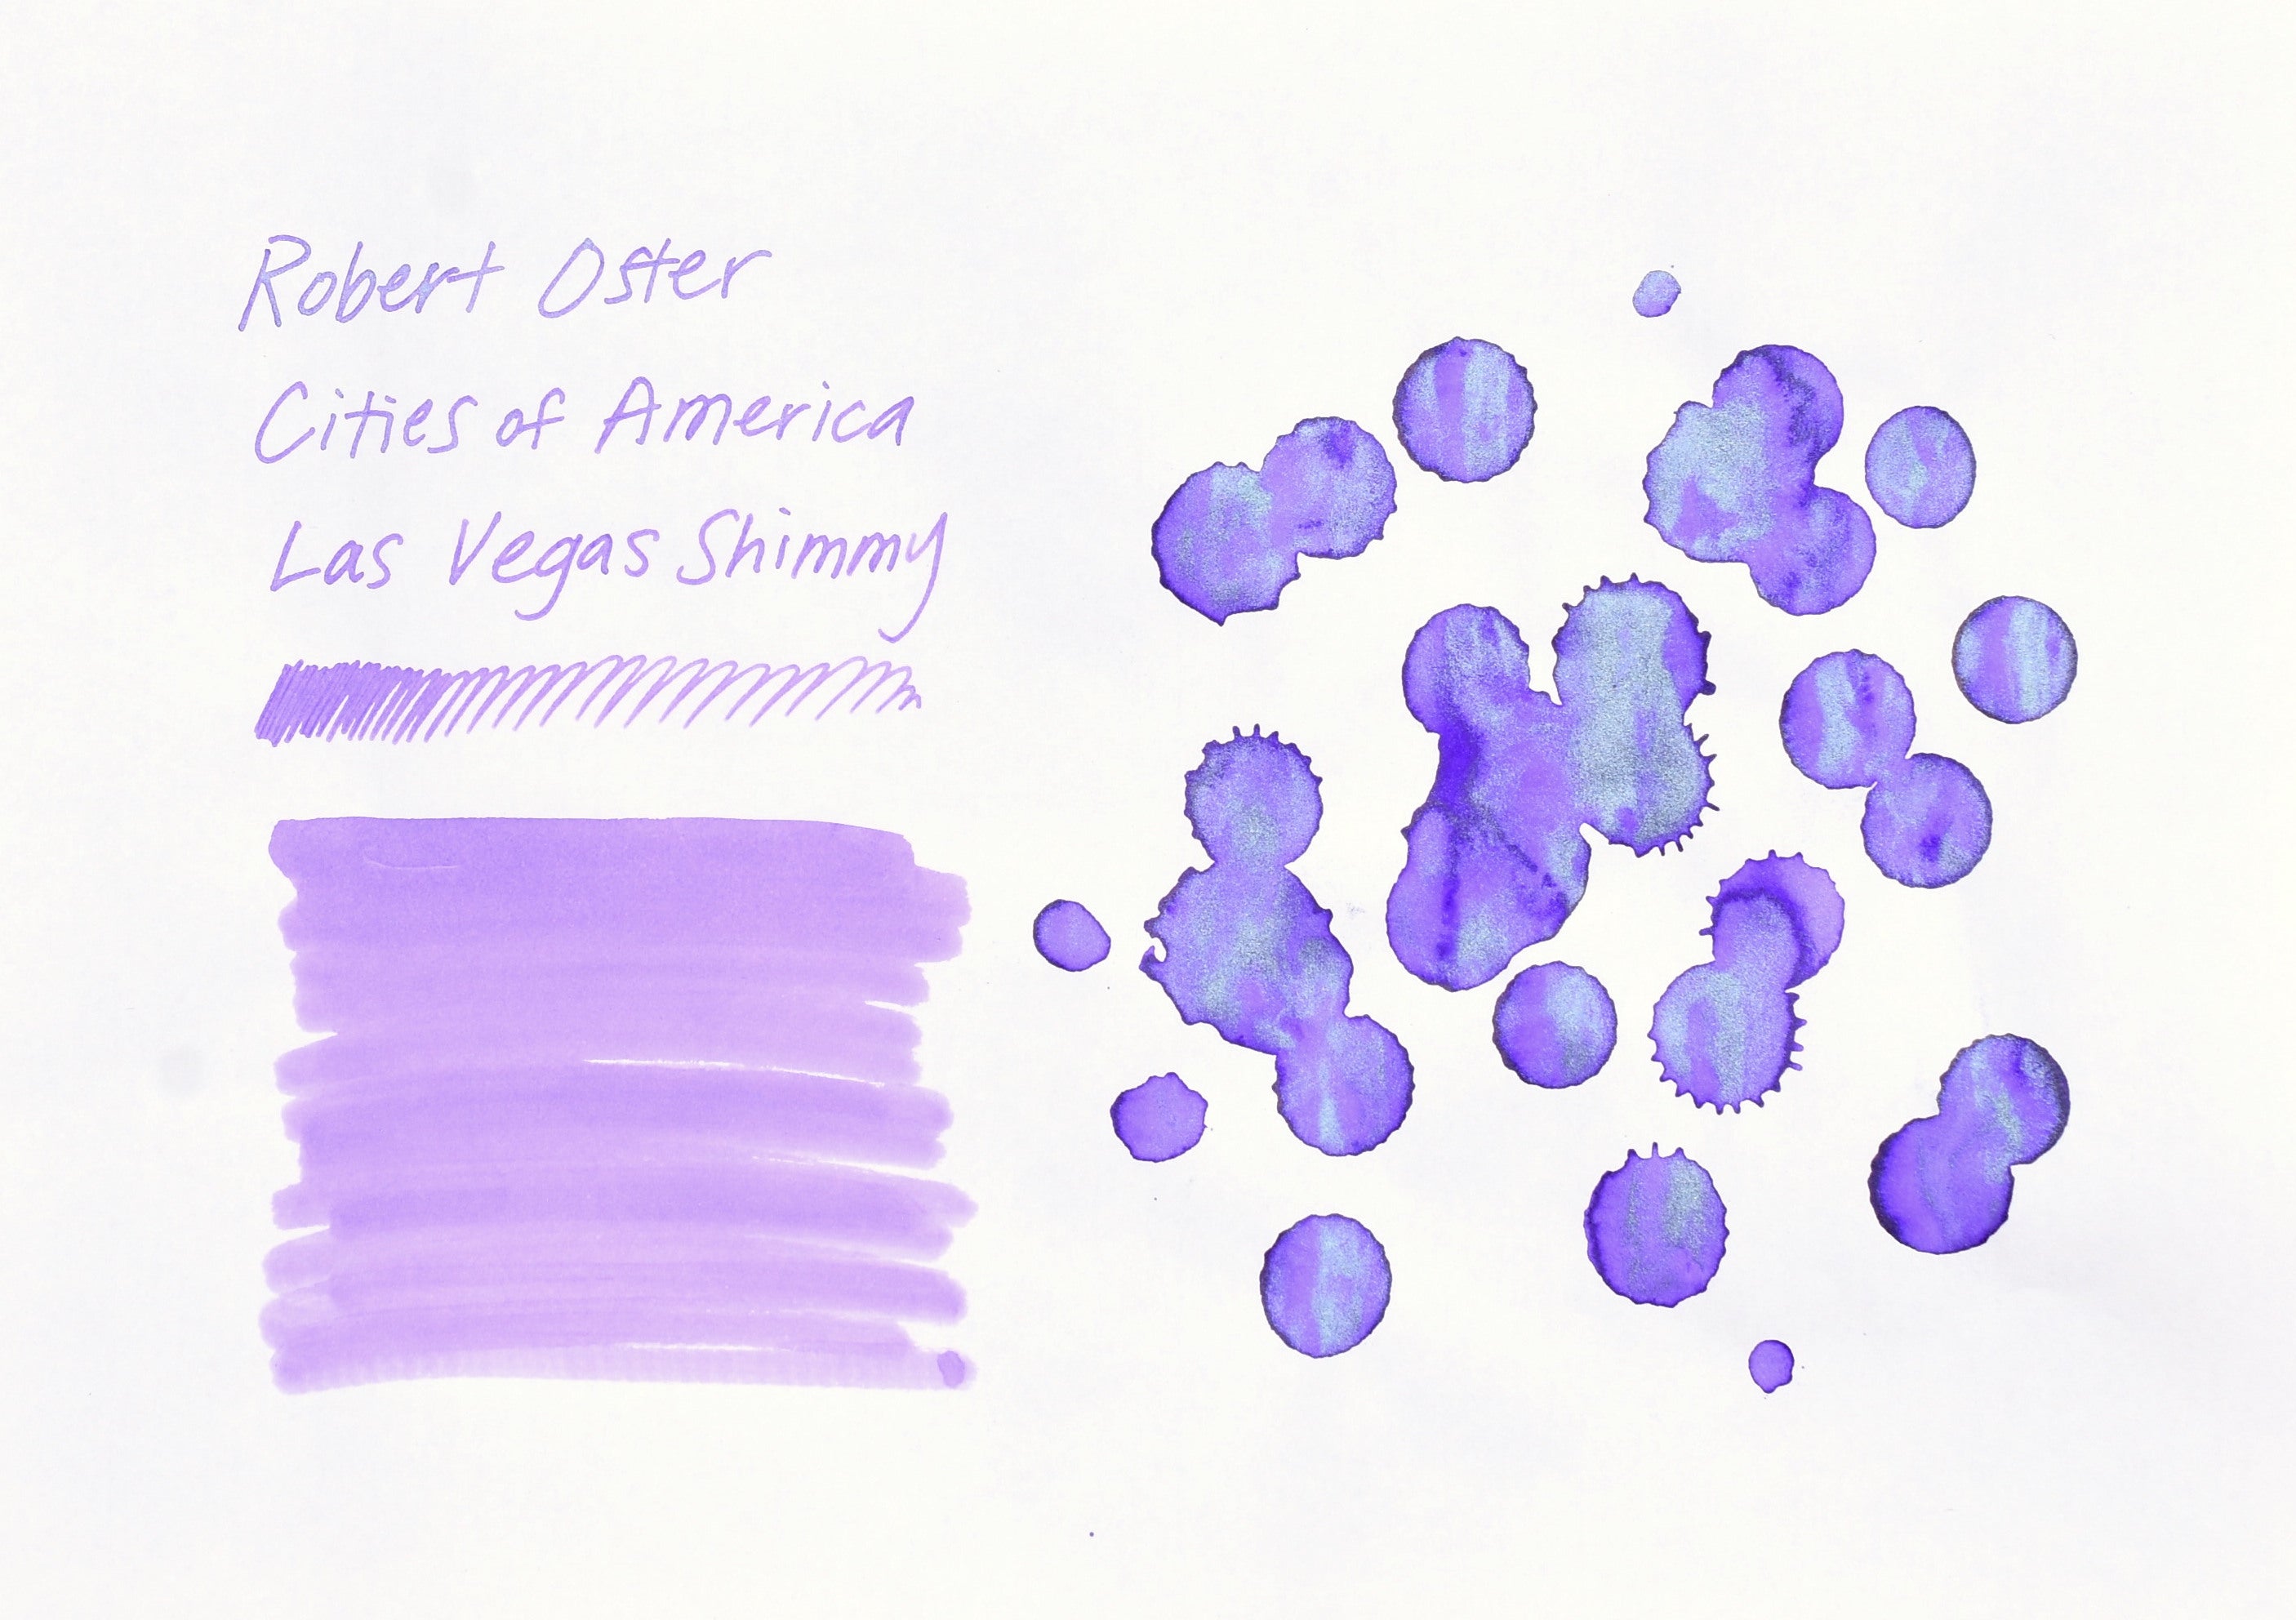 Robert Oster
Cities of America
Las Vegas Shimmy